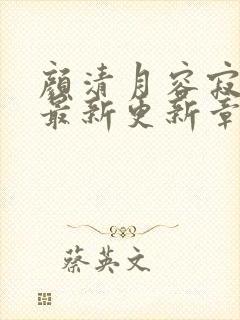 顏清月容寂
最新更新章
蔡英文